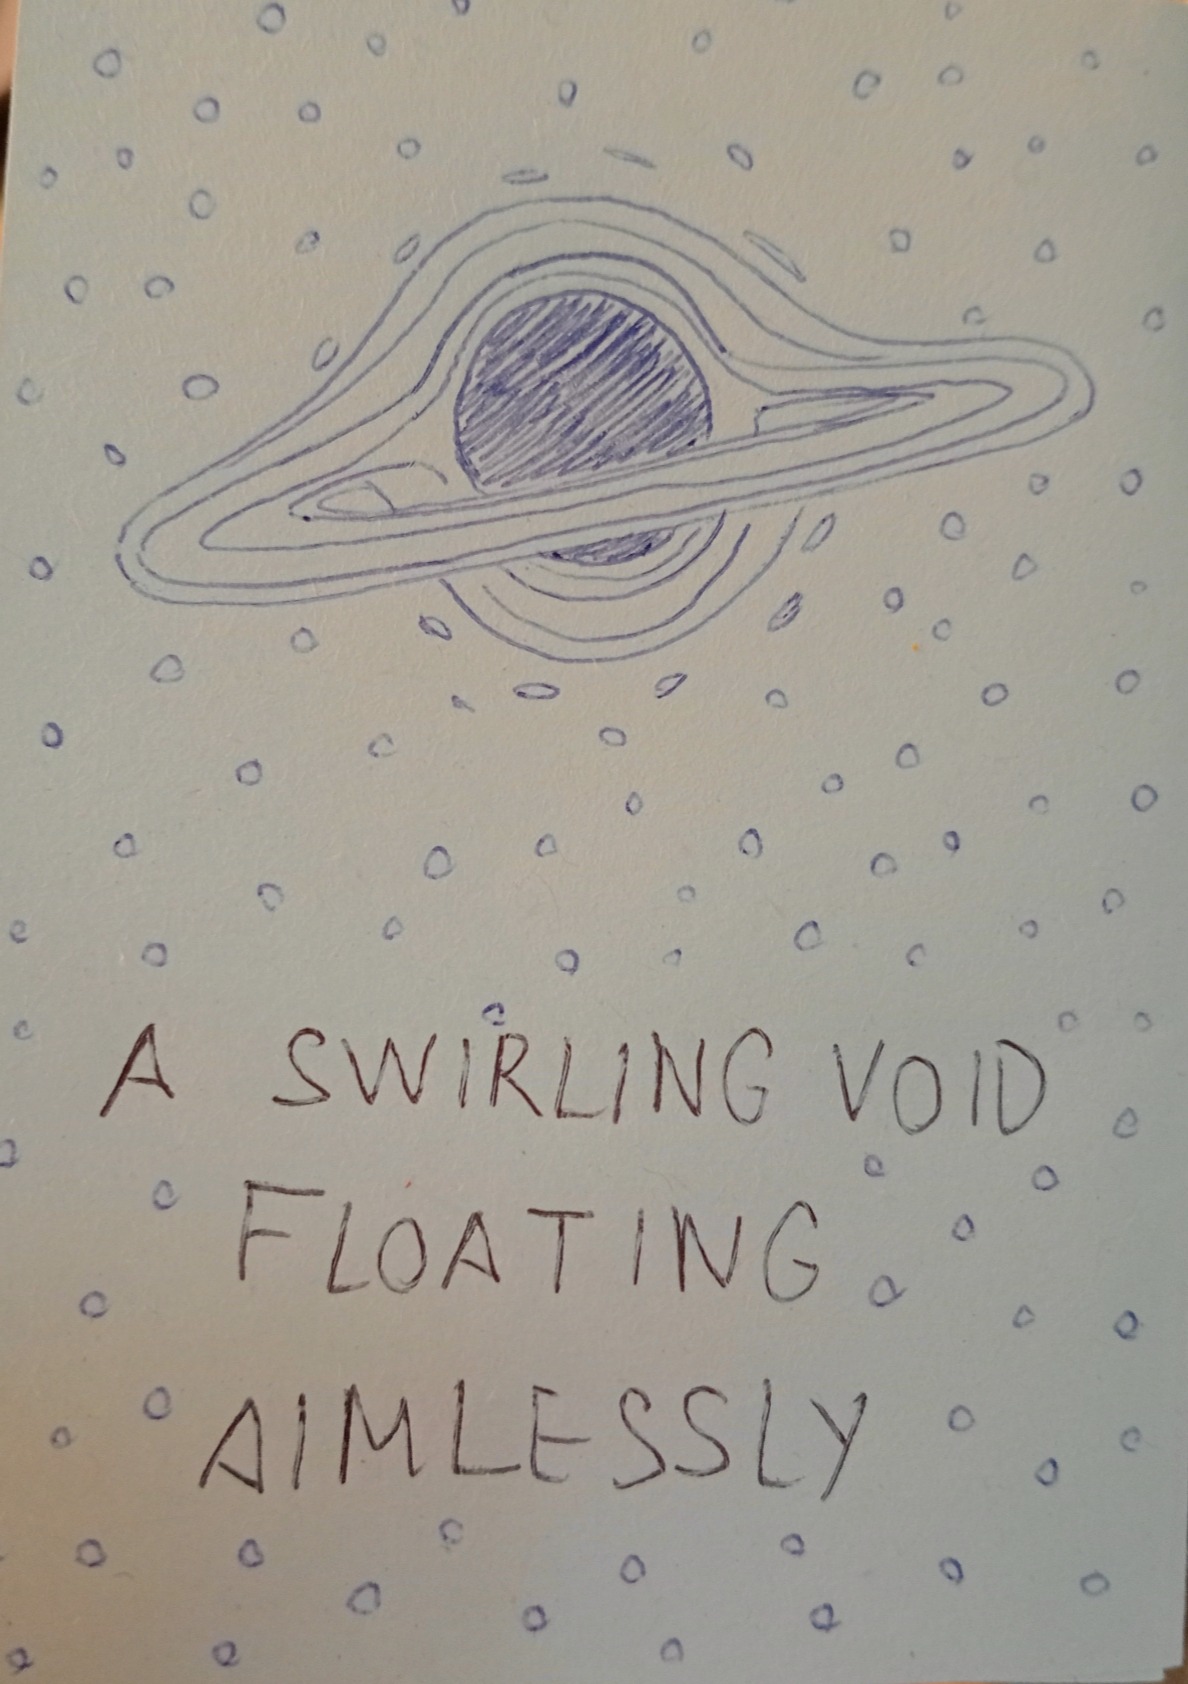 A SWIRLING VOID
FLOATING
AIMLESSLY